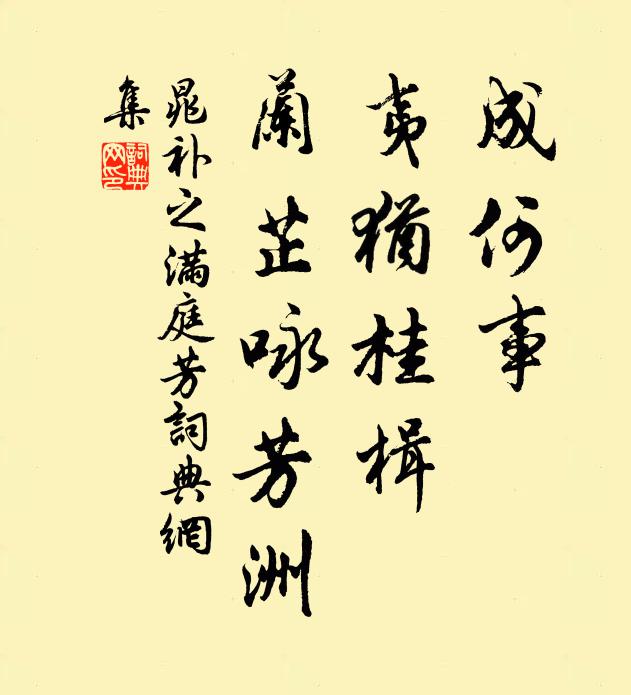 成何事
夷猶桂楫
蘭芷咏芳洲
晁补之满庭芳詞典網
集
詞典
网印